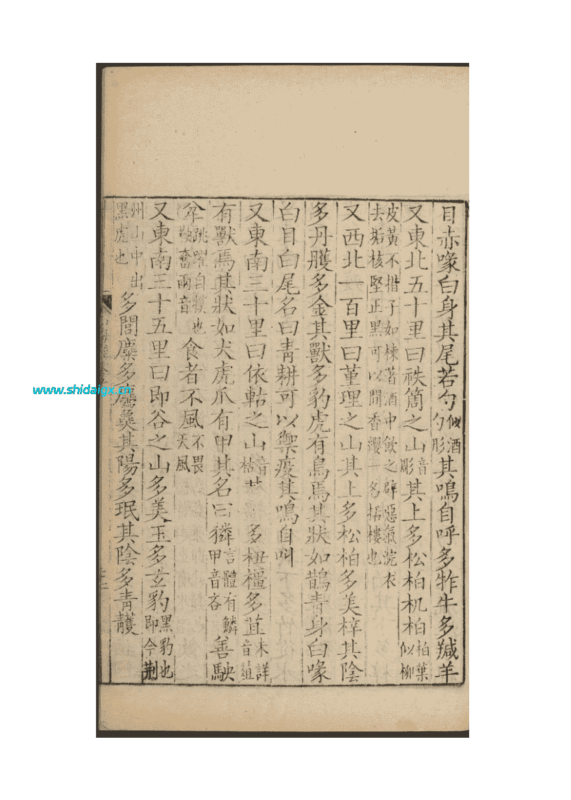 目赤喙白身其尾若勺似酒勺形其鳴自呼多㸲牛多羬羊
又東北五十里曰祑簡之山音彫其上多松柏机柏柏葉似柳
皮黃不措子如楝著酒中飲之辟惡氣浣衣
去垢核堅正黑可以間香纓一名栝樓也
又西北一百里曰堇理之山其上多松柏多美梓其陰
多丹雘多金其獸多豹虎有鳥焉其狀如鵲青身白喙
白目白尾名曰青耕可以禦疫其鳴自叫
又東南三十里曰依軲之山音枯多杻橿多苴未詳音葅
有獸焉其狀如犬虎爪有甲其名曰獜言體有鱗甲音吝善駚
坌跳躍自撲也鞅奮兩音食者不風不畏天風
又東南三十五里曰即谷之山多美玉多玄豹黑豹也即今荊
州山中出黑虎也多閭麋多麢㚟其陽多珉其陰多青雘
www.shidaigs.cn